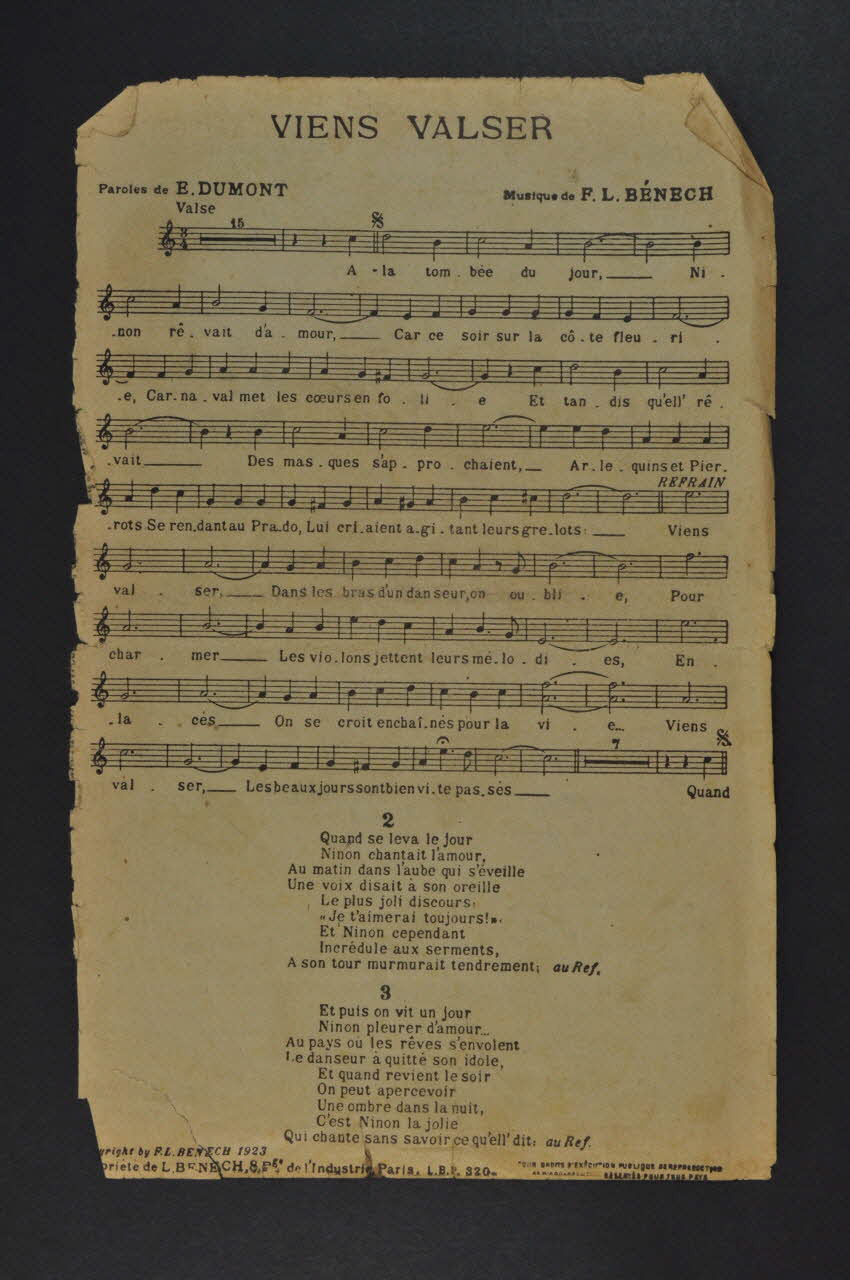 VIENS VALSER
Paroles de E. DUMONT
Musique de F. L. BÉNECH
Valse
15
A - la tom . bée du jour, Ni .
.non rê . vait d'a . mour, Car ce soir sur la cô . te fleu . ri .
.e, Car. na . val met les cœurs en fo . li . e Et tan . dis qu'ell' rê .
.vait Des mas . ques s'ap . pro . chaient, Ar. le . quins et Pier.
REFRAIN
.rots Se ren.dant au Pra.do, Lui cri.aient a.gi . tant leurs gre.lots: Viens
val . ser, Dans les bras d'un danseur, on ou . bli . e, Pour
char . mer Les vio.lons jettent leurs mé.lo . di . es, En .
.la . cés On se croit enchaî.nés pour la vi . e... Viens
7
val . ser, Les beaux jours sont bien vi.te pas.sés Quand
2
Quand se leva le jour
Ninon chantait l'amour,
Au matin dans l'aube qui s'éveille
Une voix disait à son oreille
Le plus joli discours:
«Je t'aimerai toujours!».
Et Ninon cependant
Incrédule aux serments,
A son tour murmurait tendrement; au Ref.
3
Et puis on vit un jour
Ninon pleurer d'amour...
Au pays où les rêves s'envolent
Le danseur à quitté son idole,
Et quand revient le soir
On peut apercevoir
Une ombre dans la nuit,
C'est Ninon la jolie
Qui chante sans savoir ce qu'ell' dit: au Ref.
yright by F.L. BENECH 1923
priété de L. BENECH, 8, Pge de l'Industrie Paris. L.B.P. 320.
TOUS DROITS D'EXÉCUTION PUBLIQUE DE REPRODUCTION
RÉSERVÉS POUR TOUS PAYS